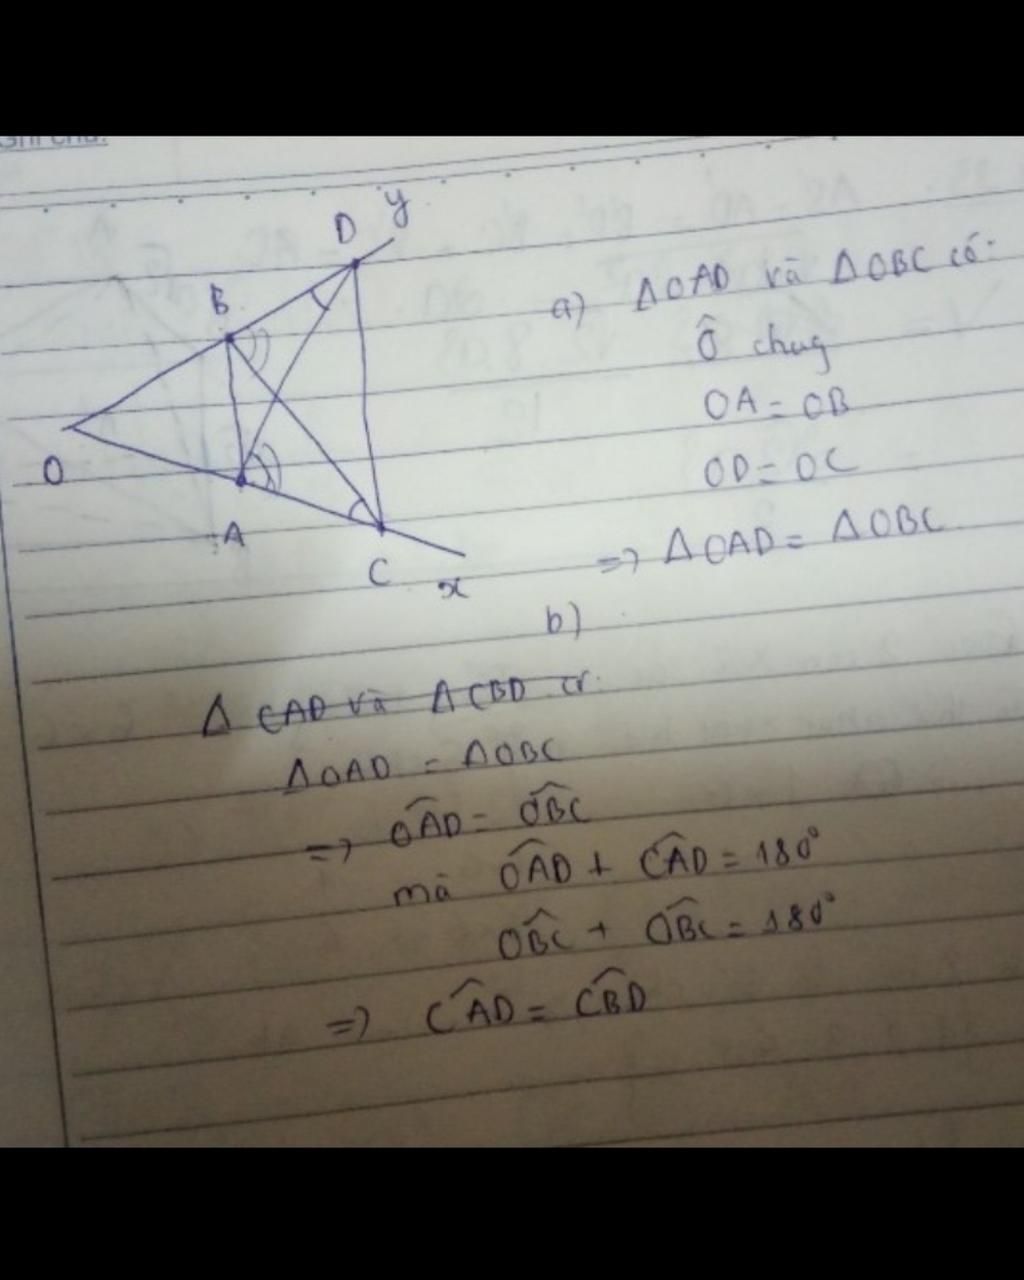 Ghi chú:
D y
B
O
A
C x
a) ΔOAD và ΔOBC có:
Ô chug
OA = OB
OD = OC
=> ΔOAD = ΔOBC
b)
Δ CAD và ΔCBD
ΔOAD = ΔOBC
=> OÂD = OB̂C
mà OÂD + CÂD = 180°
OB̂C + OB̂C = 180°
=> CÂD = CB̂D